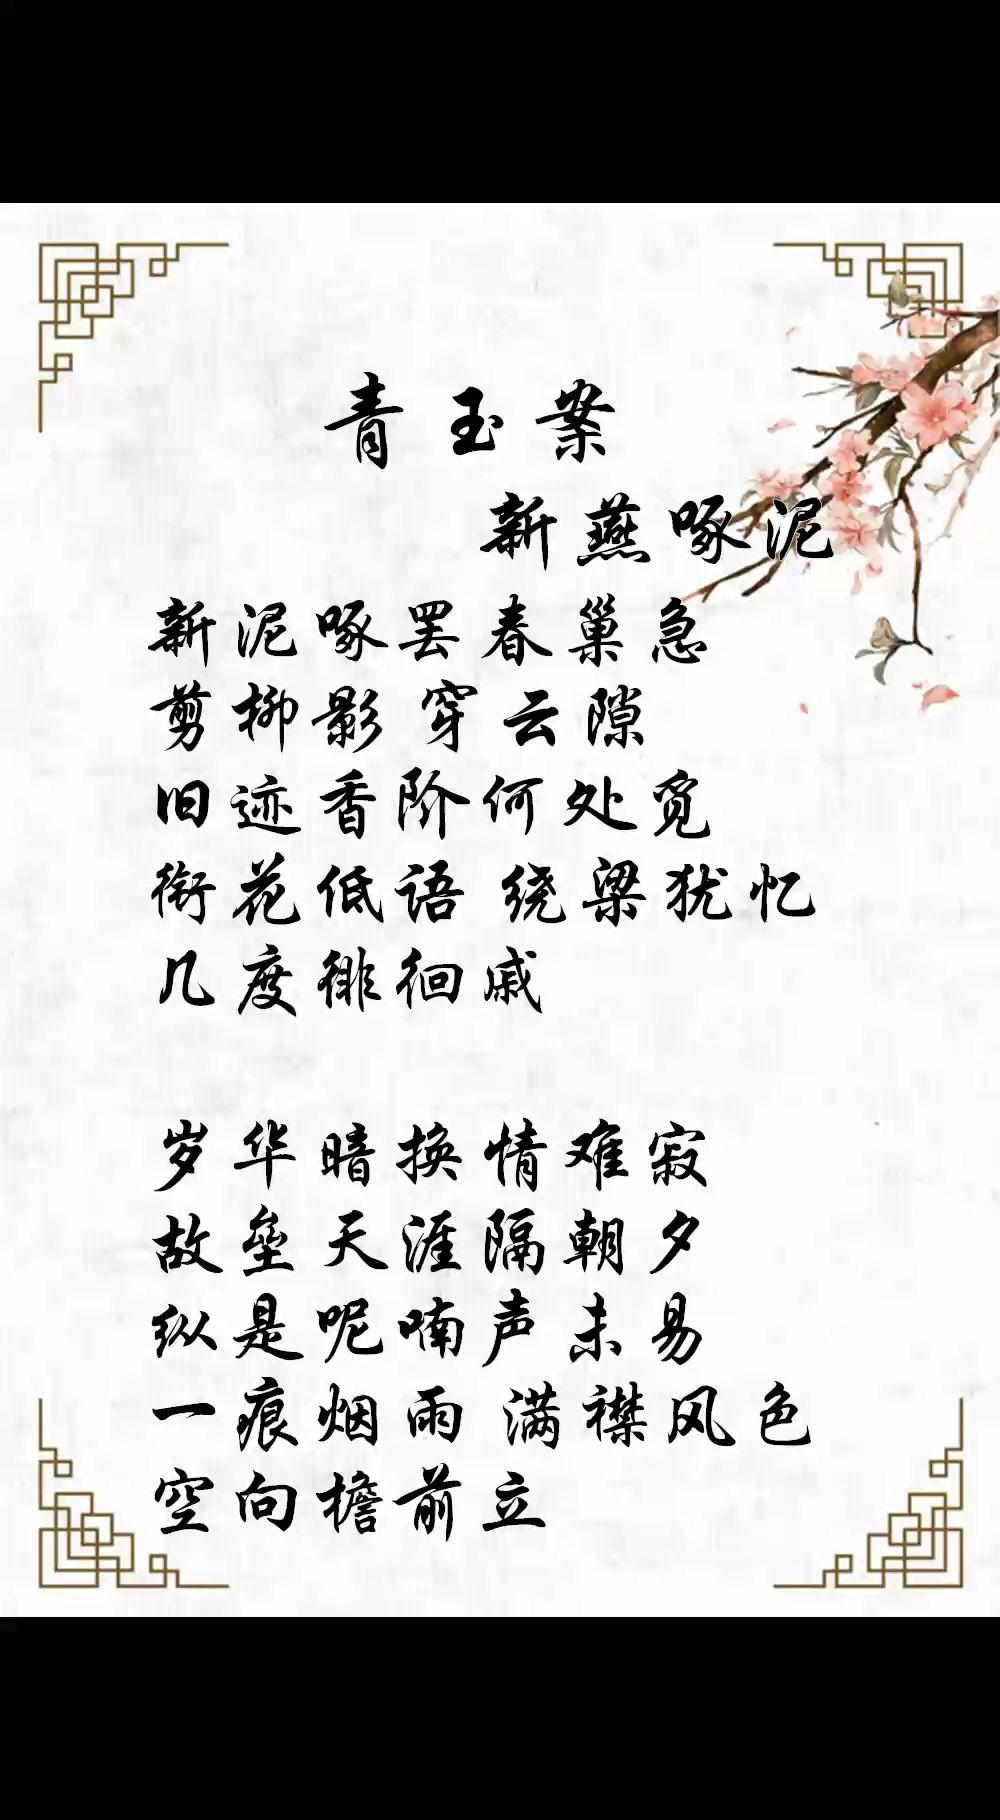 青玉案
新燕啄泥
新泥啄罢春巢急
剪柳影 穿云隙
旧迹香阶何处觅
衔花低语 绕梁犹忆
几度徘徊戚
岁华暗换情难寂
故垒天涯隔朝夕
纵是呢喃声未易
一痕烟雨 满襟风色
空向檐前立